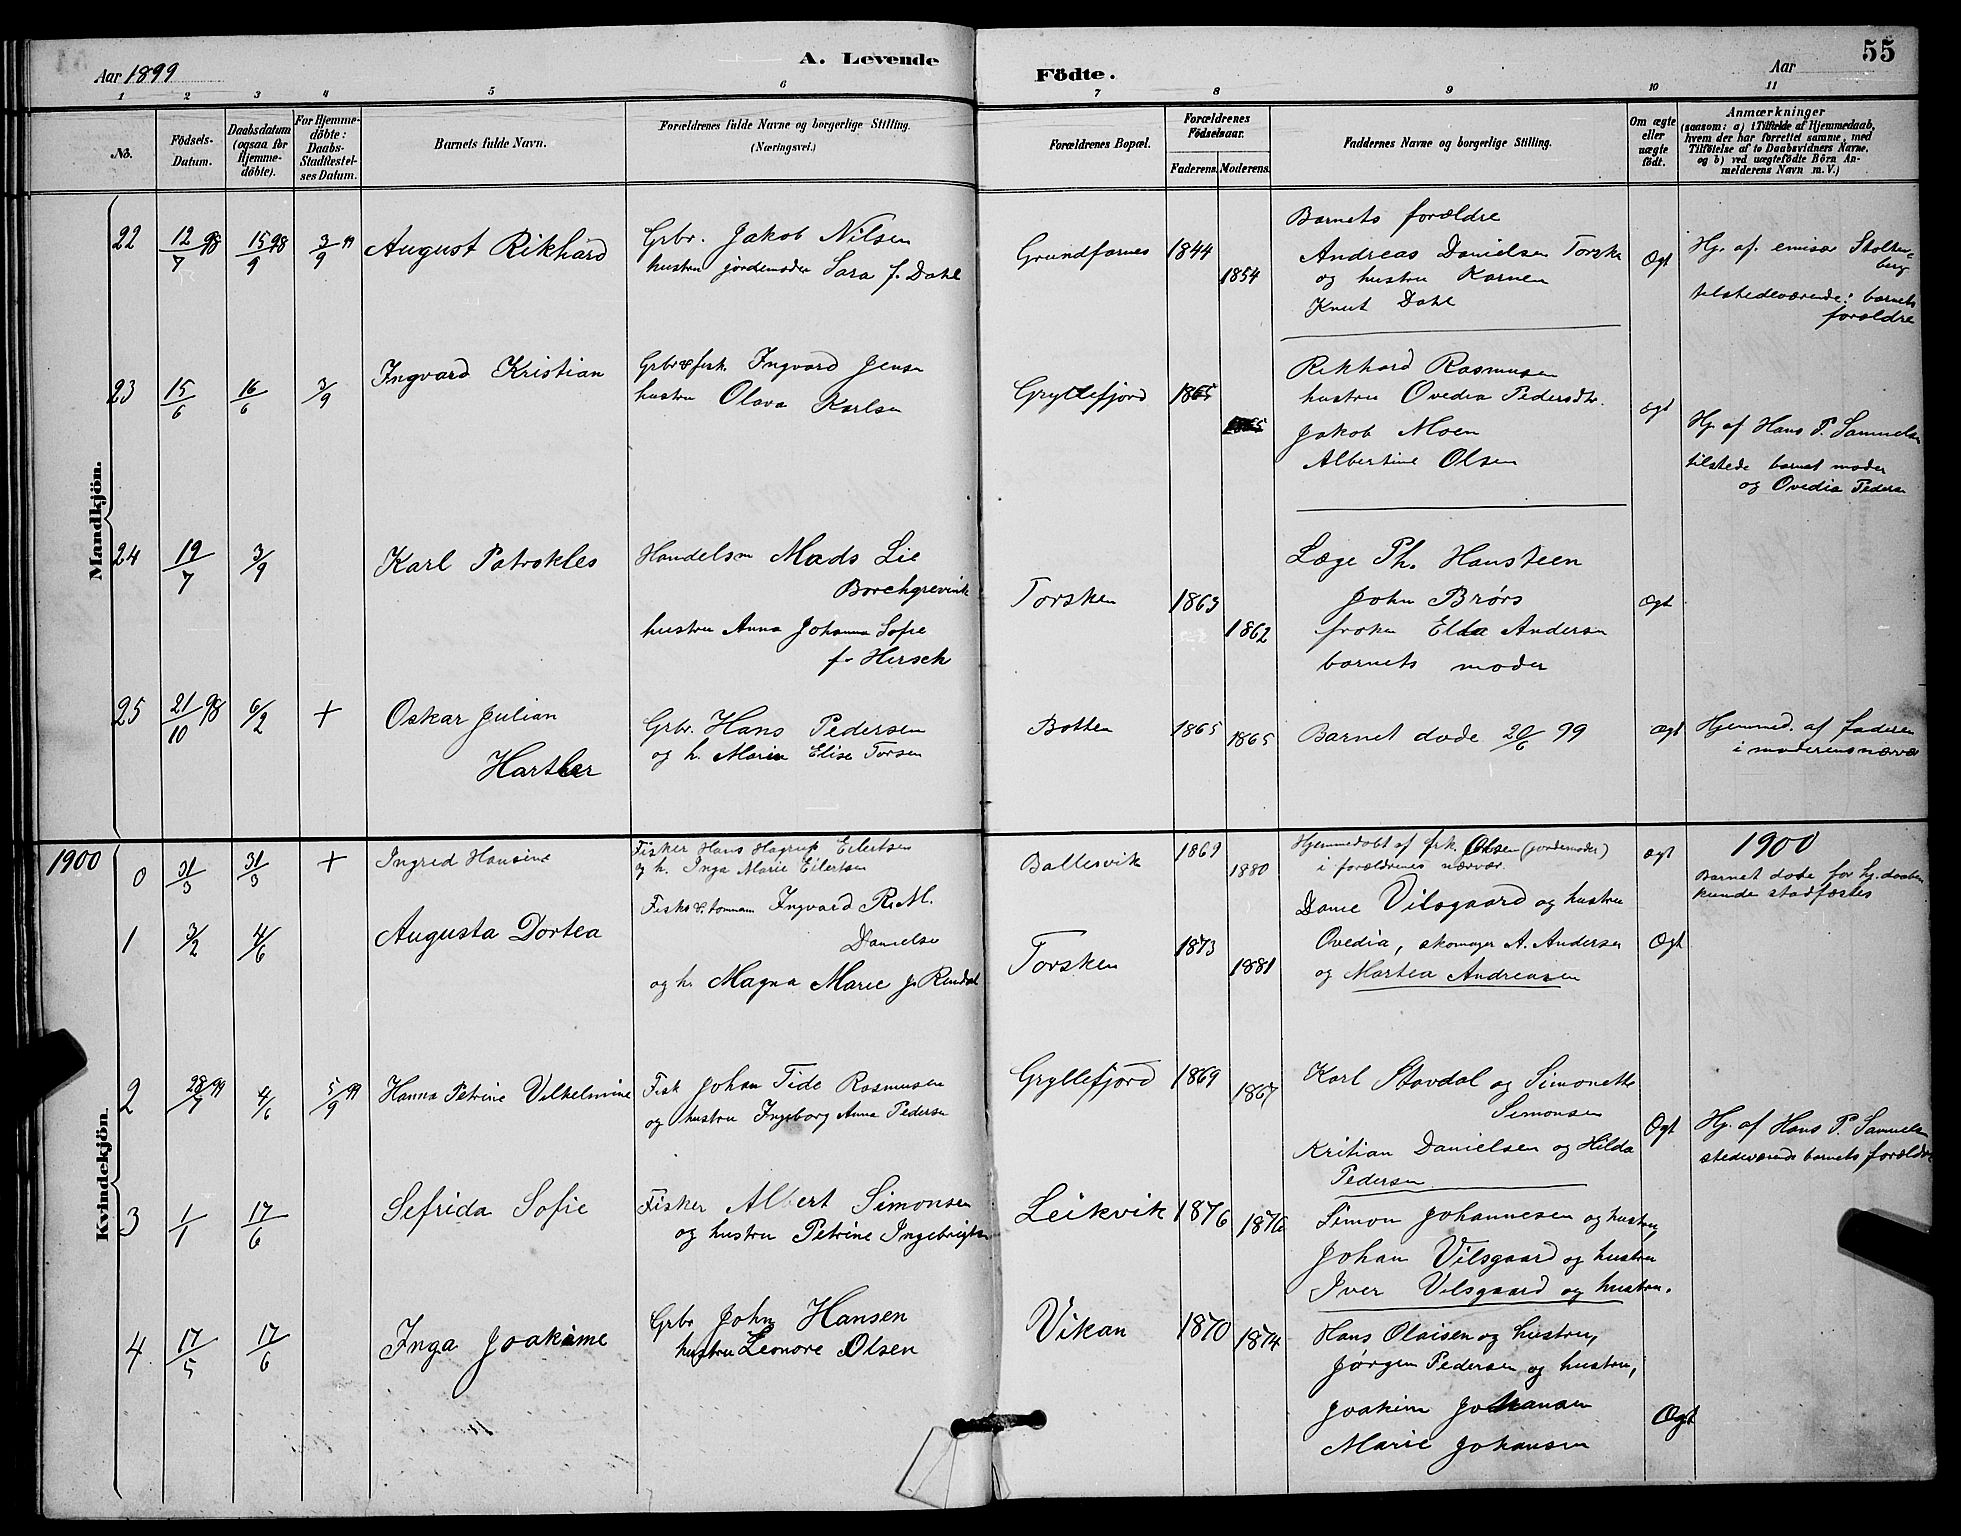 55
Aar 1899
A. Levende
Födte.
Aar
1 2 3 4 5 6 7 8 9 10 11
No.
Födsels-Datum.
Daabsdatum (ogsaa for Hjemme-döbte).
For Hjemme-döbte: Daabs-Stadfæstel-ses Datum.
Barnets fulde Navn.
Forældrenes fulde Navne og borgerlige Stilling. (Næringsvei.)
Forældrenes Bopæl.
Forældrenes Födselsaar.
Faderens. Moderens.
Faddernes Navne og borgerlige Stilling.
Om ægte eller uægte födt.
Anmærkninger
(saasom: a) i Tilfælde af Hjemmedaab, hvem der har forrettet samme, med Tilföielse af to Daabsvidners Navne, og b) ved uægtefödte Börn An-melderens Navn m. V.)
Mandkjön.
22 12/7 98 15/9 98 3/9 99 August Rikhard
Grbr. Jakob Nilsen
hustru jordemoder Sara f. Dahl
Grundfarnes 1844 1854
Barnets forældre
Andreas Danielsen Torsken
og hustru Karnen
Knut Dahl
Ægt
Hj. af. emisær Stolten-
berg
tilstedeværende: barnets
forældre
23 15/6 16/6 3/9 Ingvard Kristian
Grbr & fisk. Ingvard Jensen
hustru Olava Karlsen
Gryllefjord 1865 1865
Rikhard Rasmusen
hustru Ovedia Pedersdtr.
Jakob Moen
Albertine Olsen
ægt
Hj. af Hans P. Samuelsen
tilstede barnet moder
og Ovedia Pedersen
24 19/7 3/9 Karl Patrokles
Handelsm Mads Lie
Borchgrevink
hustru Anna Johanna Sofie
f. Hersch
Torsken 1863 1862
Læge Ph. Hansteen
John Brörs
frøken Elda Andersen
barnets moder
Ægt
25 21/10 98 6/2 + Oskar Julian
Hartler
Grbr. Hans Pedersen
og h. Maria Elise Torsen
Botten 1865 1865
Barnet døde 20/6 99
ægt
Hjemmed. af faderen
i moderens nærvær
1900
Kvindekjön.
0 31/3 31/3 + Ingrid Hansine
Fisker Hans Hagrup Eilertsen
og h. Inga Marie Eilertsen
Ballesvik 1869 1880
Hjemmedøbt af frk. Olsen (jordemoder)
i forældrenes nærvær.
ægt
1900
Barnet døde før hj. daaben
kunde stadfæstes
1 3/2 4/6 Augusta Dortea
Fisker & tømmerm Ingvard R. M.
Danielsen
og h. Magna Marie f. Rendal
Torsken 1873 1881
Dane Vilsgaard og hustru
Ovedia, skomager A. Andersen
og Martea Andreasen
Ægt
2 28/7 99 4/6 5/9 99 Hanna Petrine Vilhelmine
Fisk Johan Tide Rasmusen
og hustru Ingeborg Anna Pedersen
Gryllefjord 1869 1867
Karl Stavdal og Simonette
Simonsen
Kritian Danielsen og Hilda
Pedersen
Ægt
Hj. af Hans P. Samuelsen
stedeværende barnets forældre
3 1/1 17/6 Sefrida Sofie
Fisker Albert Simonsen
og hustru Petrine Ingebrigtsen
Leikvik 1876 1876
Simon Johannesen og hustru,
Johan Vilsgaard og hustru
Iver Vilsgaard og hustru.
4 17/5 17/6 Inga Joakime
Grbr John Hansen
hustru Leonore Olsen
Vikan 1870 1874
Hans Olaisen og hustru,
Jørgen Pedersen og hustru,
Joakim Johansen
Marie Johansen
Ægt